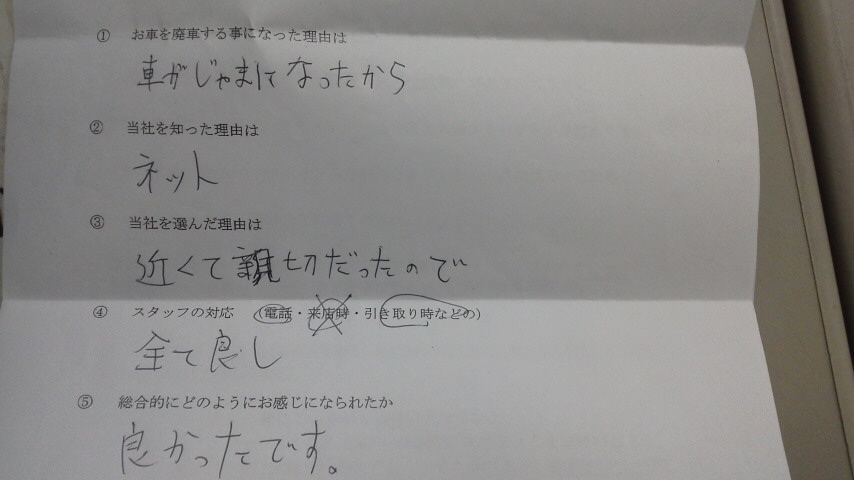 ① お車を廃車する事になった理由は
車がじゃまになったから
② 当社を知った理由は
ネット
③ 当社を選んだ理由は
近くて親切だったので
④ スタッフの対応 (電話・来店時・引き取り時などの)
全て良し
⑤ 総合的にどのようにお感じになられたか
良かったです。